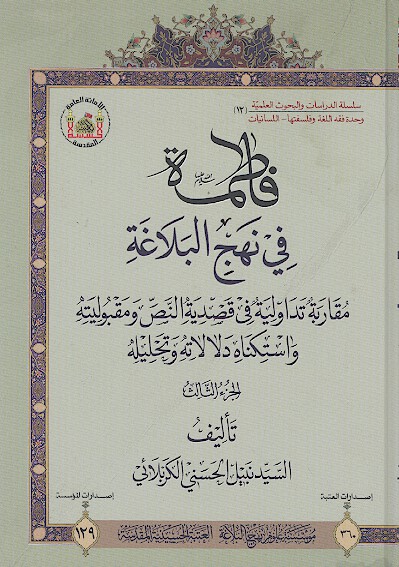 سلسلة الدراسات والبحوث العلمية (١٣)
وحدة فقه اللغة وفلسفتها - اللسانيات
الأمانة العامة
المقدسة
فاطمة
في نهج البلاغة
مقاربة تداولية في قصدية النص ومقبوليته
واستكناه دلالاته وتحليله
الجزء الثالث
تأليف
السيد نبيل الحسني الكربلائي
إصدارات العتبة
إصدارات المؤسسة
٣٦٠
مؤسسة علوم نهج البلاغة العتبة الحسينية المقدسة
١٢٩